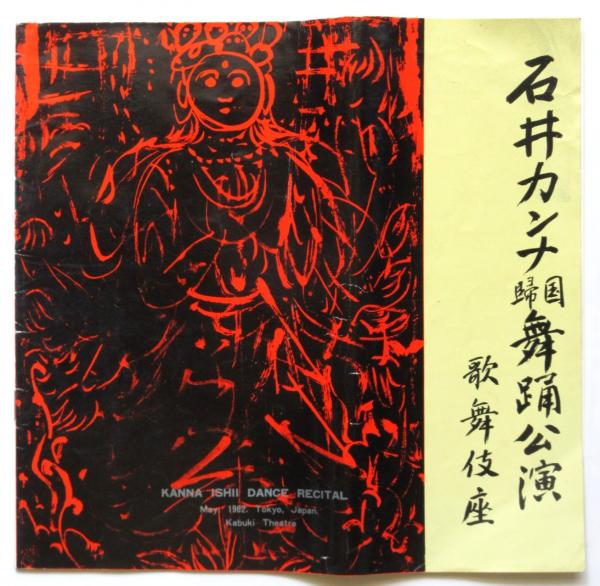 石井カンナ帰国舞踊公演
歌舞伎座
KANNA ISHII DANCE RECITAL
May, 1982. Tokyo, Japan.
Kabuki Theatre